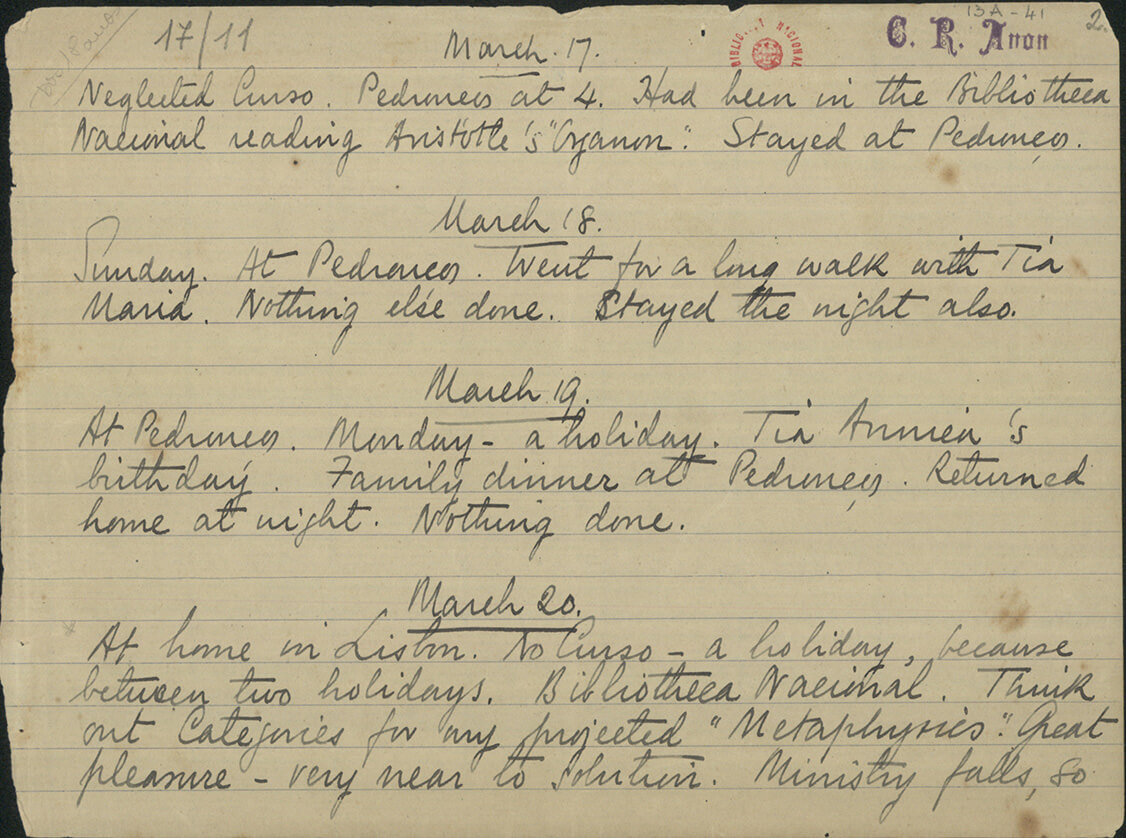 13A-41
2
17/11
C. R. Anon
BIBLIOTECA NACIONAL
March. 17.
Neglected Curso. Pedrouços at 4. Had been in the Bibliotheca
Nacional reading Aristotle's "Organon". Stayed at Pedrouços.
March 18.
Sunday. At Pedrouços. Went for a long walk with Tia
Maria. Nothing else done. Stayed the night also.
March 19.
At Pedrouços. Monday - a holiday. Tia Annica's
birthday. Family dinner at Pedrouços. Returned
home at night. Nothing done.
March 20.
At home in Lisbon. No Curso - a holiday, because
between two holidays. Bibliotheca Nacional. Think
out Categories for my projected "Metaphysics". Great
pleasure - very near to solution. Ministry falls, so